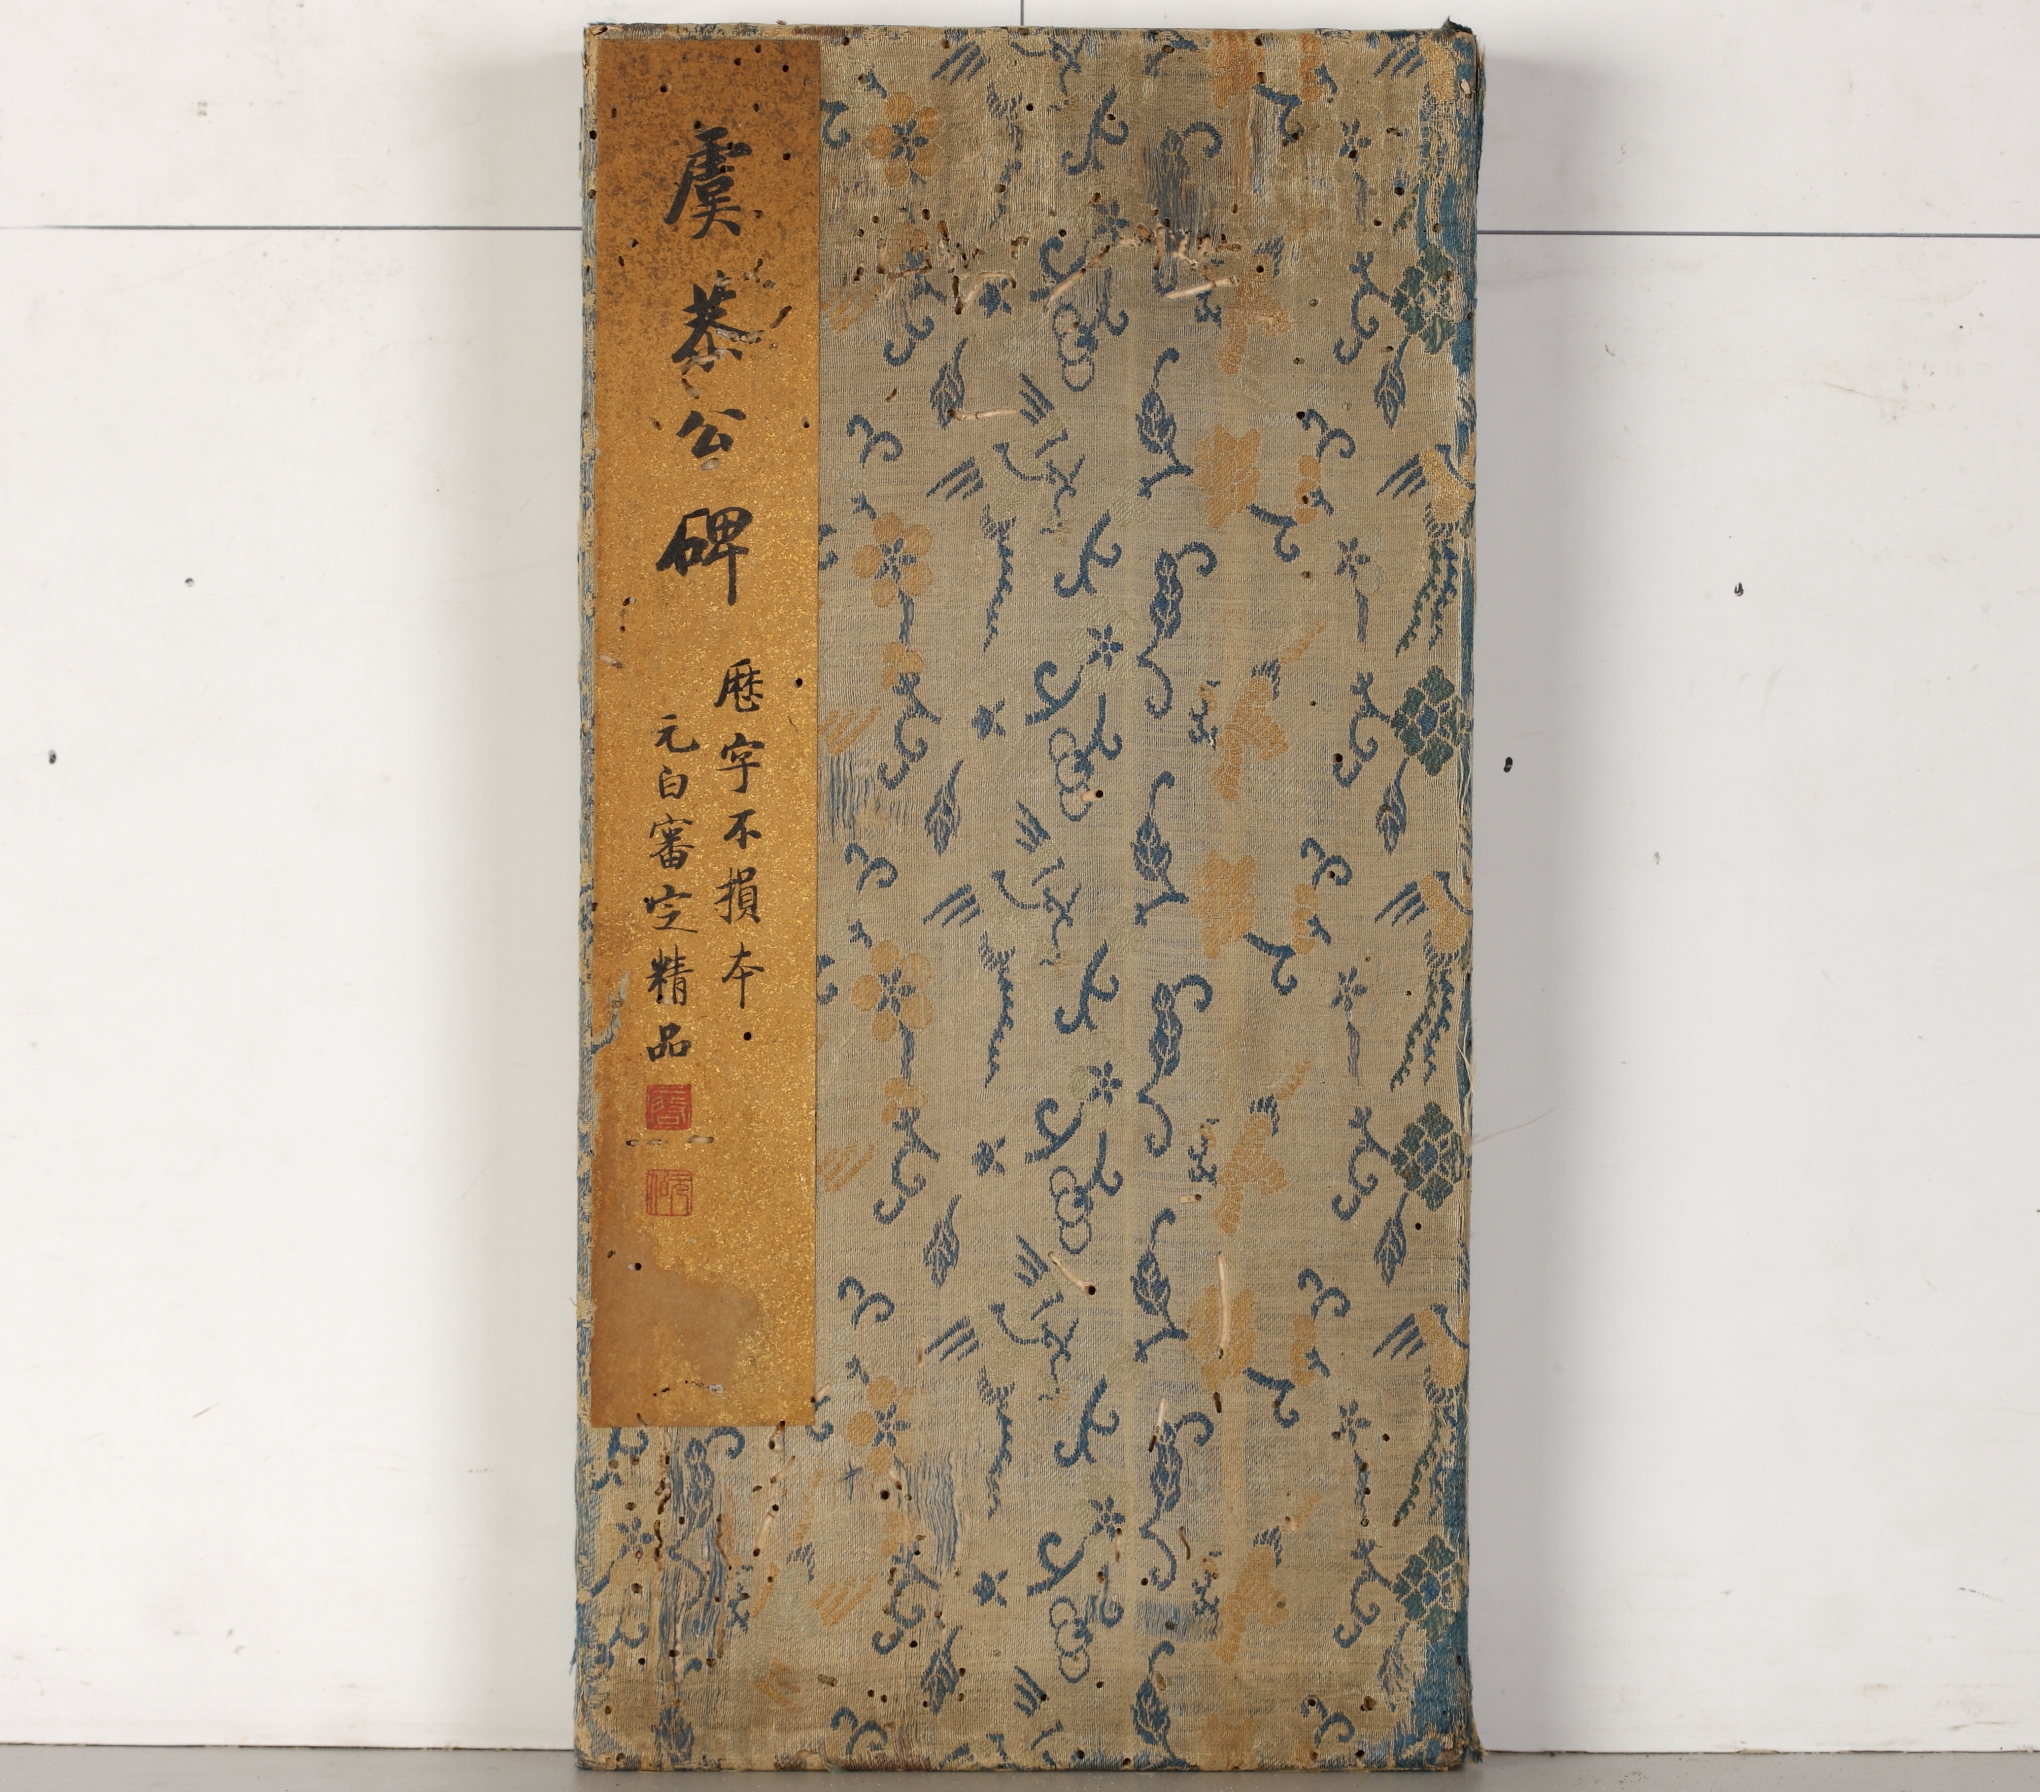 虞恭公碑
歷字不損本
元白審定精品